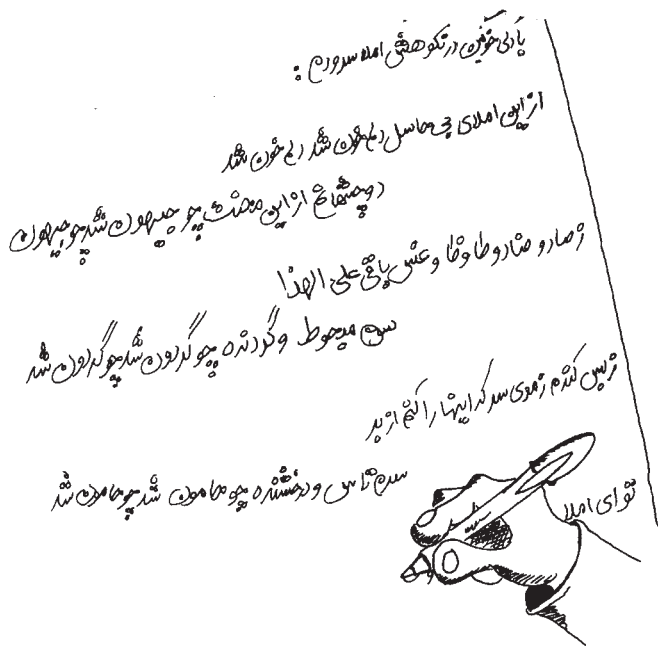 با دلی خونین در نکوهش املا سرودم :
از این املای بی حاصل دلم خون شد دلم خون شد
دو چشمانم از این محنت چو جیهون شد چو جیهون
ز صاد و ضاد و طا و ظا و عین باقی علی الهذا
سرم و گردنده چو گردون شد چو گردون شد
ز بس کندم ز موی سر که اینها را کنم از بر
سرم تاس و درخشنده چو هامون شد چو هامون شد
تو ای املا